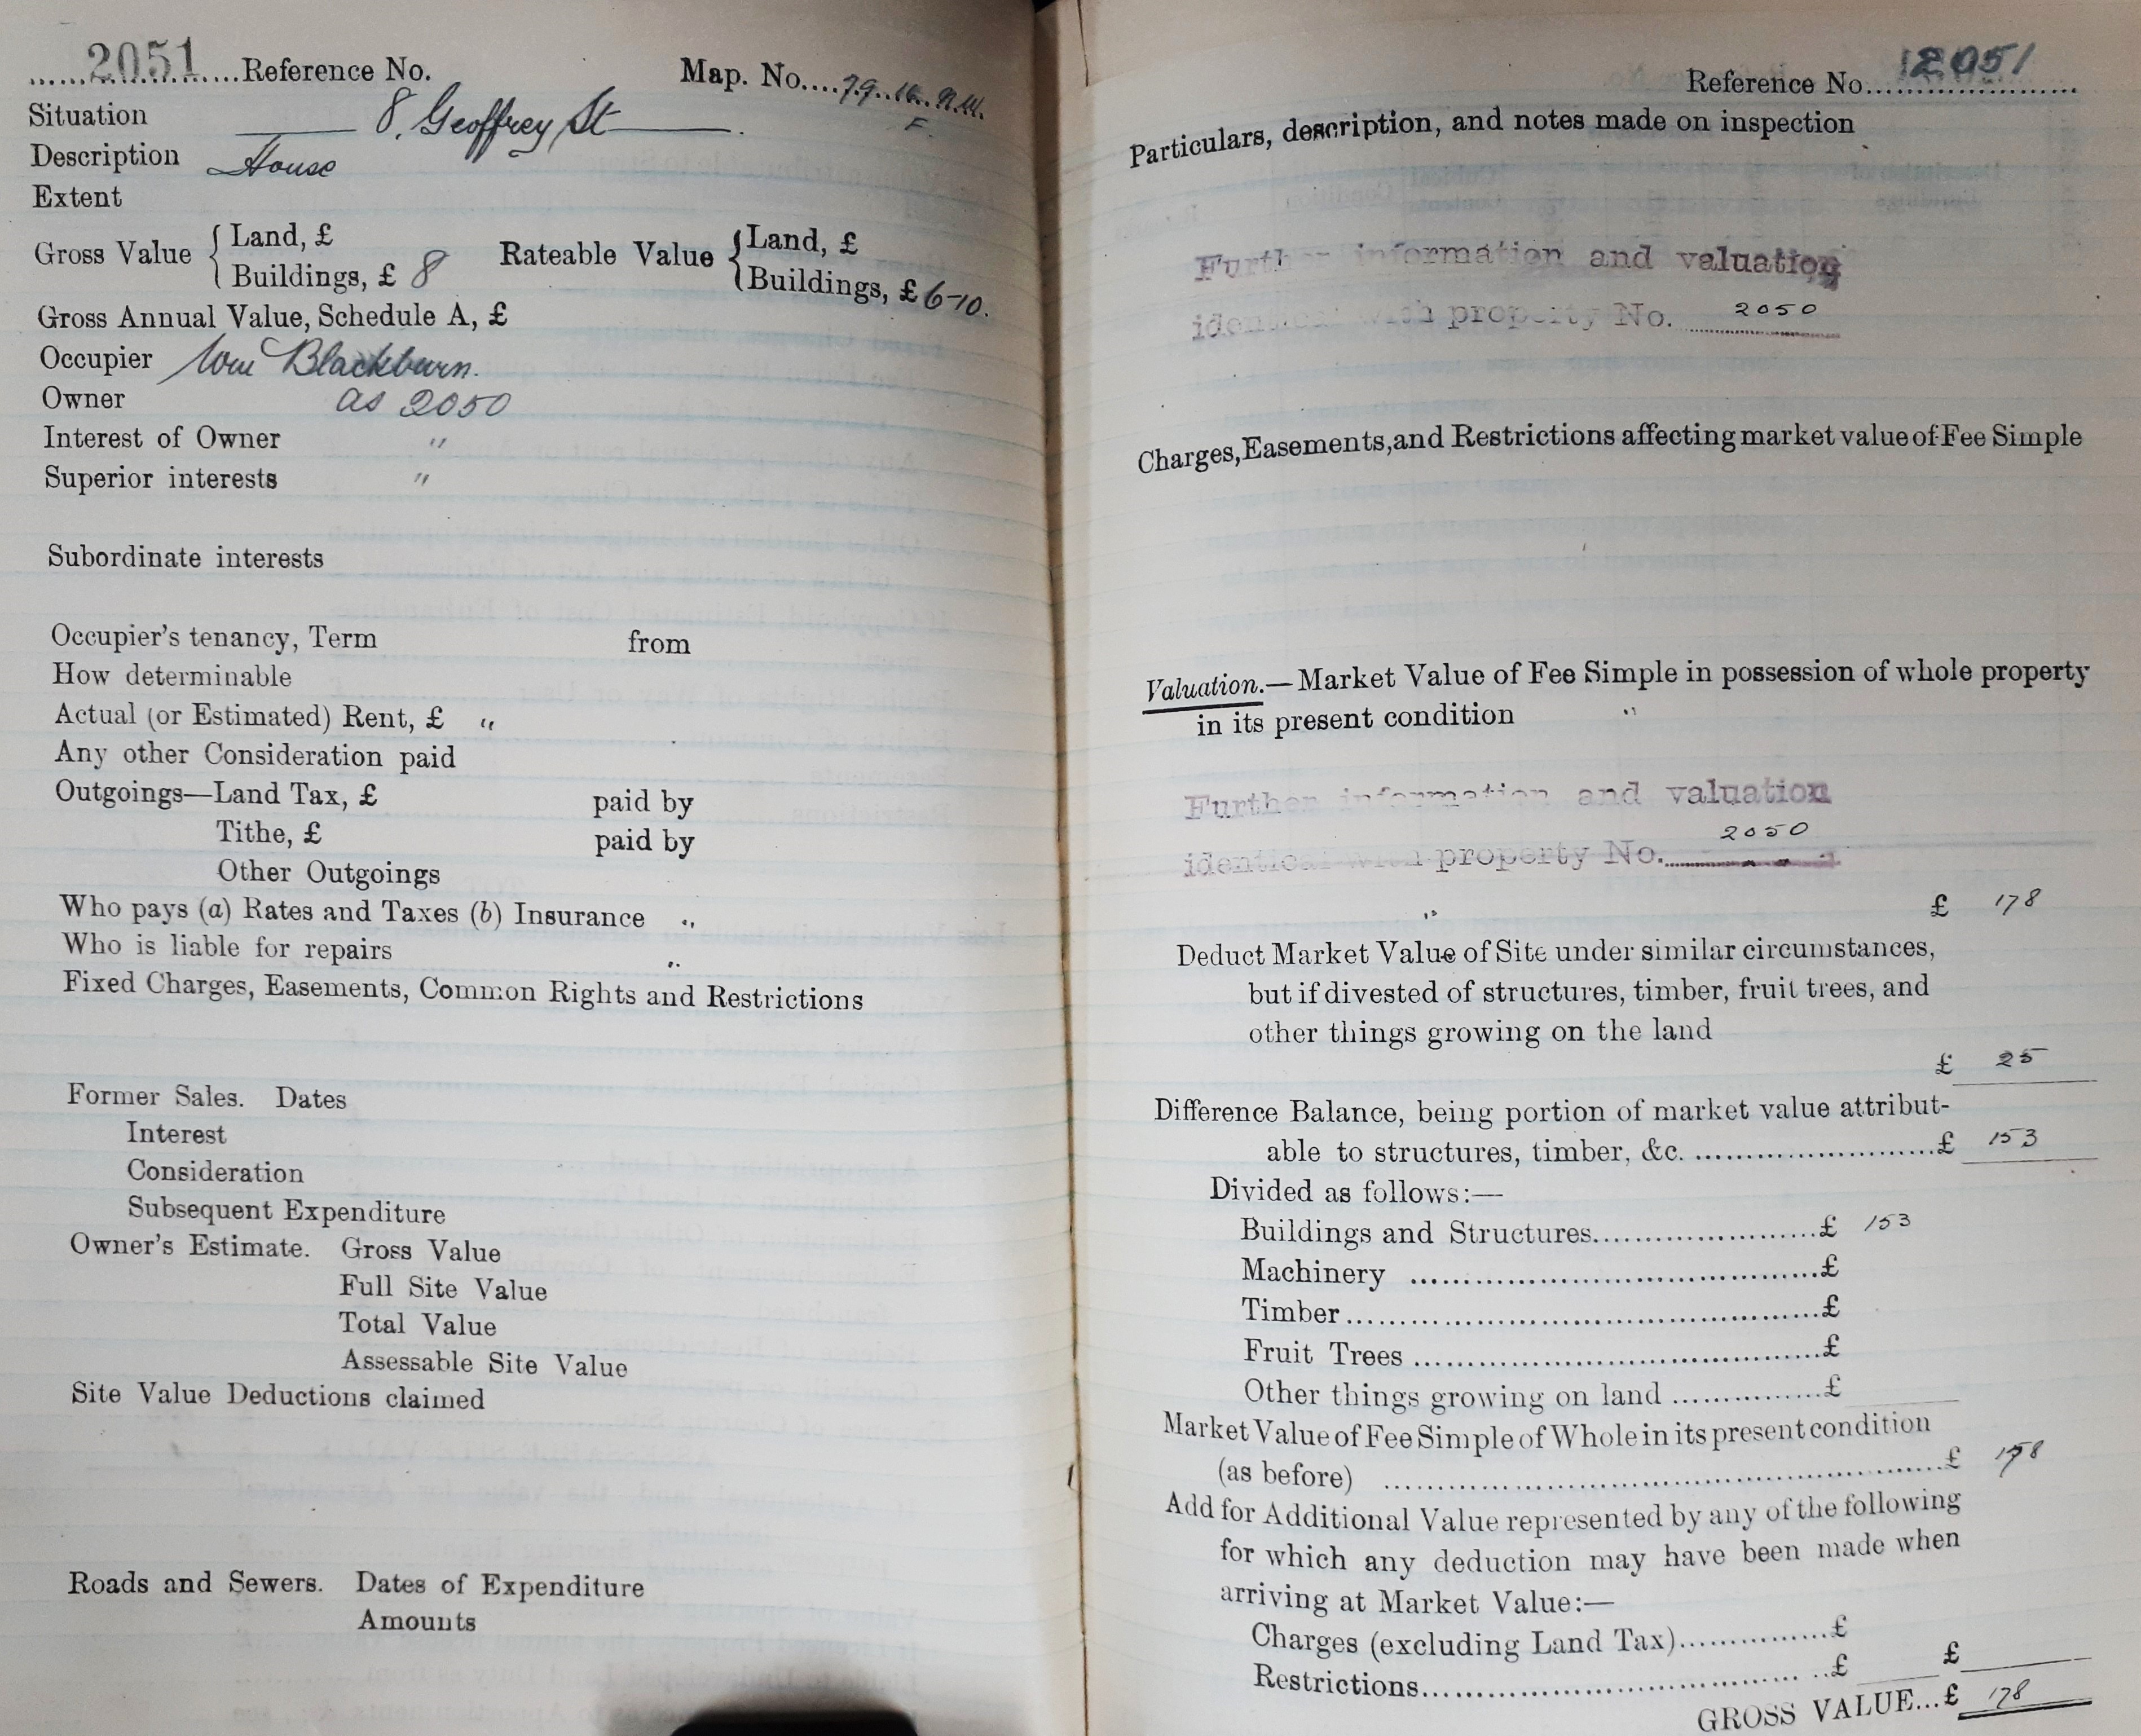 2051 Reference No. Map. No. 79. 16. N.W.
F.
Situation 8, Geoffrey St.
Description House
Extent
Gross Value { Land, £ Rateable Value { Land, £
Buildings, £ 8 Buildings, £ 6-10.
Gross Annual Value, Schedule A, £
Occupier Wm Blackburn.
Owner as 2050
Interest of Owner "
Superior interests "
Subordinate interests
Occupier's tenancy, Term from
How determinable
Actual (or Estimated) Rent, £ "
Any other Consideration paid
Outgoings—Land Tax, £ paid by
Tithe, £ paid by
Other Outgoings
Who pays (a) Rates and Taxes (b) Insurance "
Who is liable for repairs "
Fixed Charges, Easements, Common Rights and Restrictions
Former Sales. Dates
Interest
Consideration
Subsequent Expenditure
Owner's Estimate. Gross Value
Full Site Value
Total Value
Assessable Site Value
Site Value Deductions claimed
Roads and Sewers. Dates of Expenditure
Amounts
Reference No. 2051
Particulars, description, and notes made on inspection
Further information and valuation
identical with property No. 2050
Charges, Easements, and Restrictions affecting market value of Fee Simple
Valuation.—Market Value of Fee Simple in possession of whole property
in its present condition "
Further information and valuation
identical with property No. 2050
" £ 178
Deduct Market Value of Site under similar circumstances,
but if divested of structures, timber, fruit trees, and
other things growing on the land
£ 25
Difference Balance, being portion of market value attribut-
able to structures, timber, &c. £ 153
Divided as follows:—
Buildings and Structures £ 153
Machinery £
Timber £
Fruit Trees £
Other things growing on land £
Market Value of Fee Simple of Whole in its present condition
(as before) £ 178
Add for Additional Value represented by any of the following
for which any deduction may have been made when
arriving at Market Value:—
Charges (excluding Land Tax) £
Restrictions £ £
GROSS VALUE... £ 178